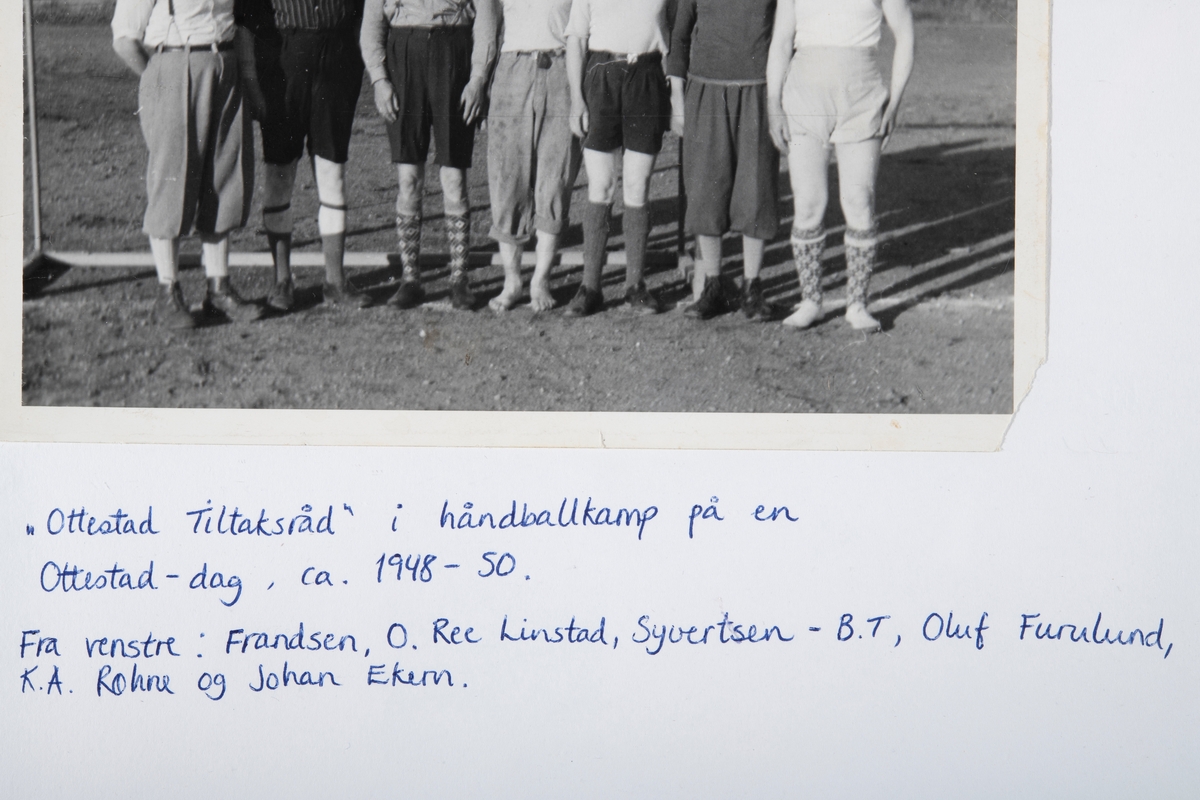 „Ottestad Tiltaksråd“ i håndballkamp på en
Ottestad-dag, ca. 1948-50.
Fra venstre: Frandsen, O. Ree Linstad, Syvertsen - B.T, Oluf Furulund,
K.A. Rohne og Johan Ekern.